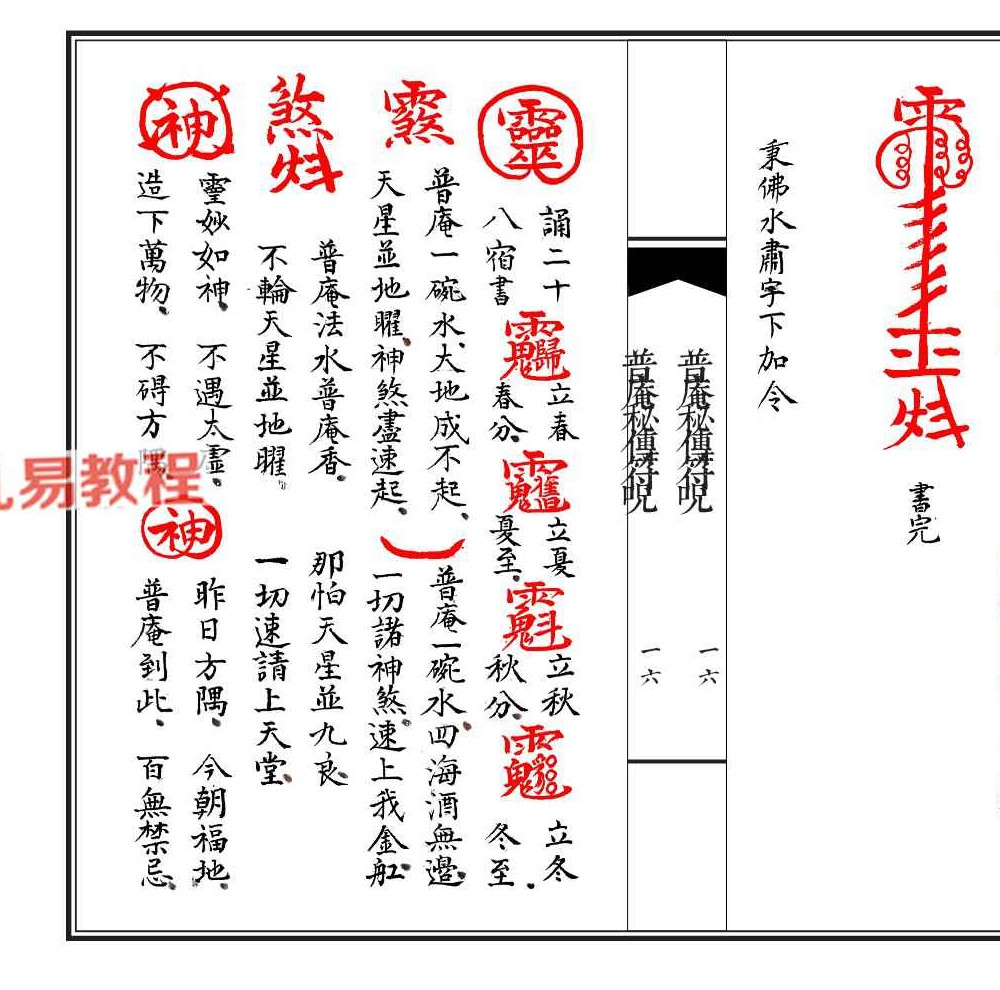 書完
秉佛水肅字下加令
普庵秘傳符呪 一六
普庵秘傳符呪 一六
靈
誦二十八宿書
立春
春分、
立夏
夏至、
立秋
秋分、
立冬
冬至.
普庵一碗水、大地成不起、
天星並地曜、神煞盡速起、
普庵一碗水、四海酒無邊、
一切諸神煞、速上我金舡、
煞炓
普庵法水普庵香、
不輪天星並地曜、
那怕天星並九良、
一切速請上天堂、
神
靈妙如神、
造下萬物、
不遇太虛、
不碍方隅、
神
昨日方隅、今朝福地、
普庵到此、百無禁忌、
易教程